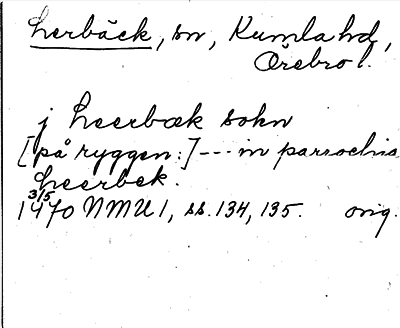 Lerbäck, sn, Kumla hd,
Örebro l.
j Leerbæk sokn
[på ryggen:] --- in parrochia
Leerbek.
3/5
1470 NMU 1, ss. 134, 135. orig.